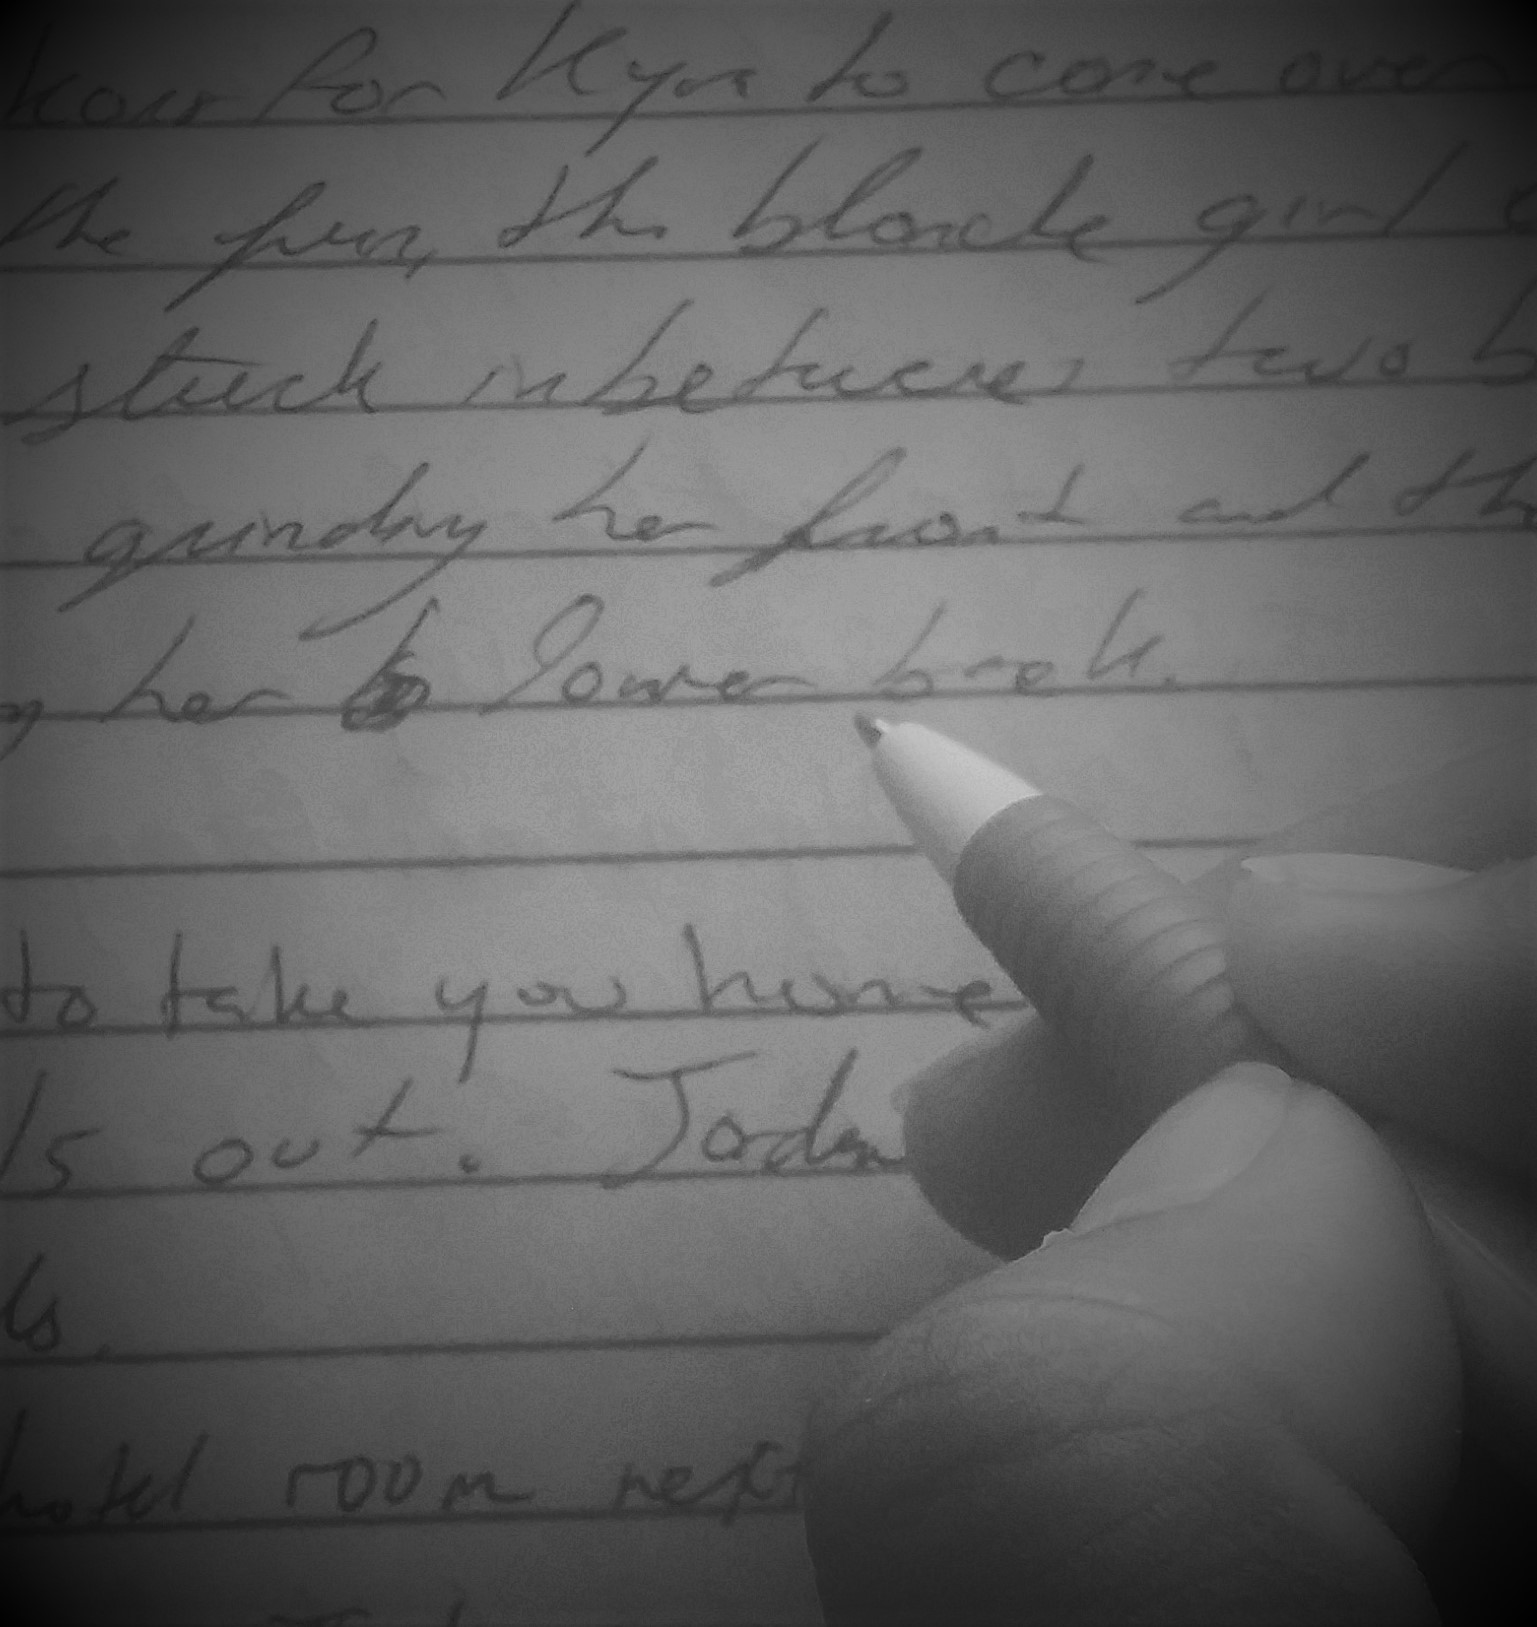 for Kyra to come over
the fun, the blonde girl
stuck inbetween two b
grinding her front and th
her lower back.
to take you home
ls out. Jorden
ls.
hotel room next